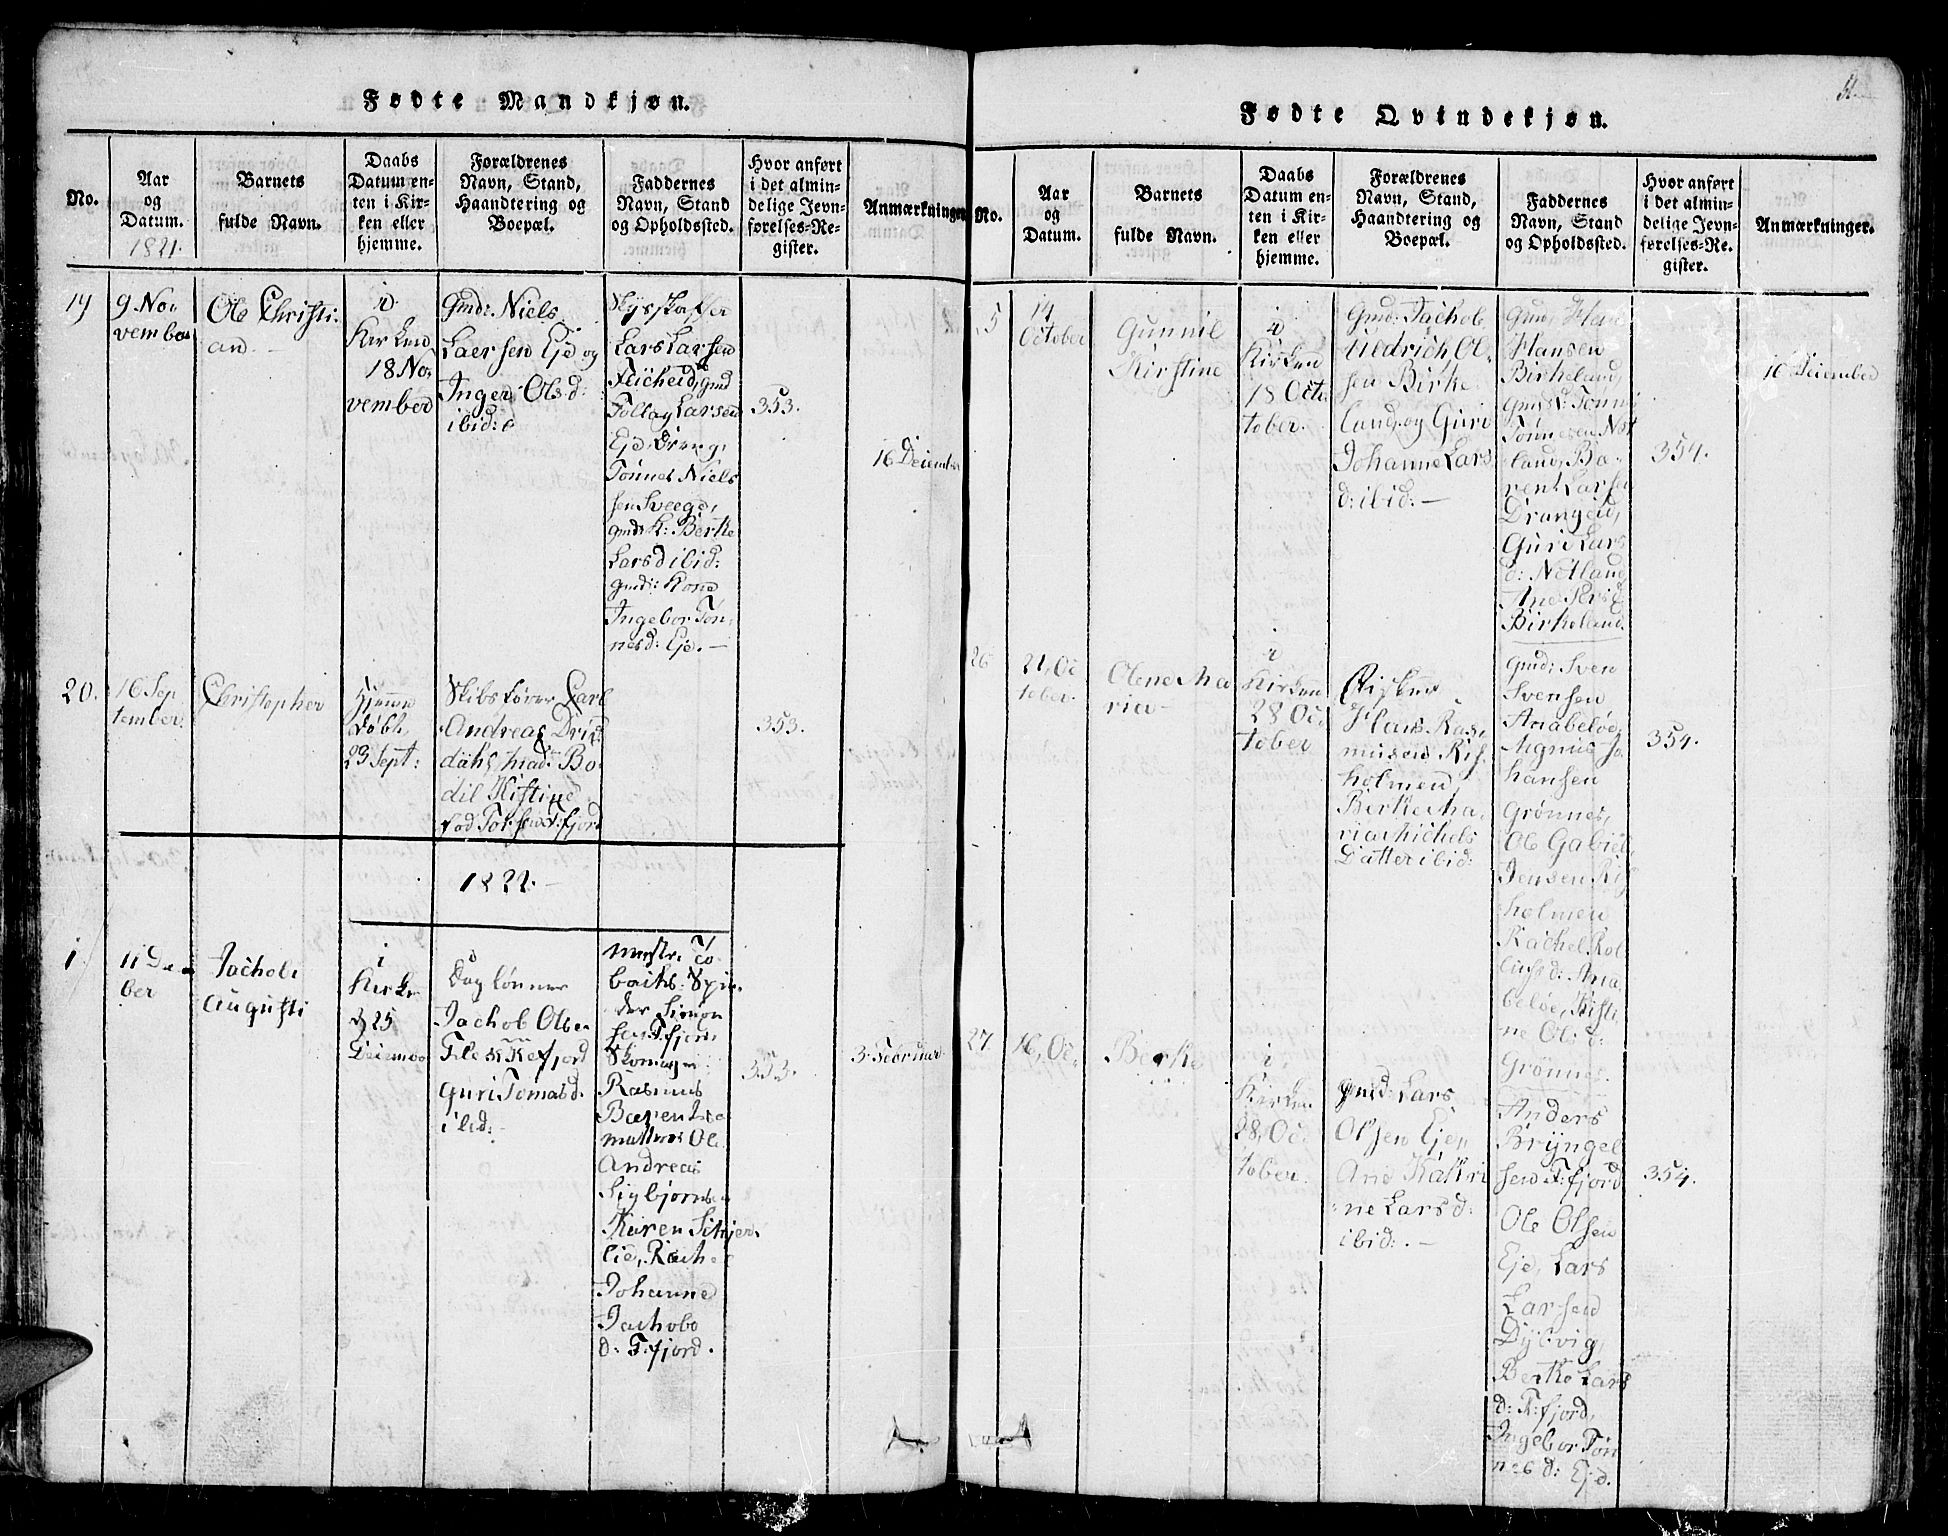 Fødte Mandkjøn.
No.
Aar
og
Datum.
1821.
Barnets
fulde Navn.
Daabs
Datum en-
ten i Kir-
ken eller
hjemme.
Forældrenes
Navn, Stand,
Haandtering og
Boepæl.
Faddernes
Navn, Stand
og Opholdssted.
Hvor anført
i det almin-
delige Jevn-
førelses-Re-
gister.
Anmærkninger
19
9 No-
vember
Ole Christi-
an
i
Kirken
18 No-
vember
Gmd: Niels
Laersen Eje og
Inger Olsd:
ibid:
Skysskaffer
Lars Larsen
gmd
Tollag Larsen
Eje Dreng,
Tønnes Niels
sen
gmds K: Berte
Larsd ibid:
gmds: Kone
Ingebor Tøn-
nesd: Eje. —
353.
16 December
20.
16 Sep
tember:
Christopher
Hjemme
døbt,
23 Sept:
Skibsfører Carl
Andreas
mad: Bo-
dil Kistine
fjord
353.
1822. —
1
11 De
ber
Jachob
Augusti
i
Kirke
d 25
Daglønner
Jachob Olse
fjord
Guri Tomasd.
ibid:
Mestr. To-
Simon
fjord
Skomager
Rasmus
Ole
Andreas
Sigbjørns
Karen
lie, Rachel
Johanne
Jachobs
d: F:fjord.
353.
3 Februar
Fødte Qvindekjøn.
No.
Aar
og
Datum.
Barnets
fulde Navn.
Daabs
Datum en-
ten i Kir-
ken eller
hjemme.
Forældrenes
Navn, Stand,
Haandtering og
Boepæl.
Faddernes
Navn, Stand
og Opholdssted.
Hvor anført
i det almin-
delige Jevn-
førelses-Re-
gister.
Anmærkninger.
5
14
October
Gunnil
Kirstine
i
Kirken
18 Oct
tober.
Gmd: Jachob
Uldrich Ol-
sen Birke-
land, og Guri
Johanne Lars
d: ibid: —
Gmd: Hans
Hansen
Birkeland,
gmd: Tønni
Tønnesen Net
land, Be-
rent Larsen
Drangeid,
Guri Lars
d: Netland,
Ane
Birkeland.
354.
16 December
26
21, Oc
tober.
Olene Ma
ria —
i
Kirken
28 Oc
tober
Fisker
Hans Ras-
musen Kis-
holmen,
Berte Ma-
ria Michels
Datter ibid:
Gmd: Sven
Svensen
Anabeløe,
Magnus Jo-
hansen
Grønnes,
Ole Gabriel
Jensen Kis
holmen
Rachel Rol
lufsd: Ana
beløe, Kisti-
ne Olsd:
Grønnes.
354.
27
16, Oc.
Berte
i
Kirken
28, Oc
tober.
gmd: Lars
Olsen Eje,
Ane Kattri
ne Lars d:
ibid: —
Anders
Bryngel
sen F:fjord
Ole Olsen
Eje, Lars
Larsen
Dybvig,
Berte Lars
d: F:fjord,
Ingebor Tøn
nes d: Eje.
354.